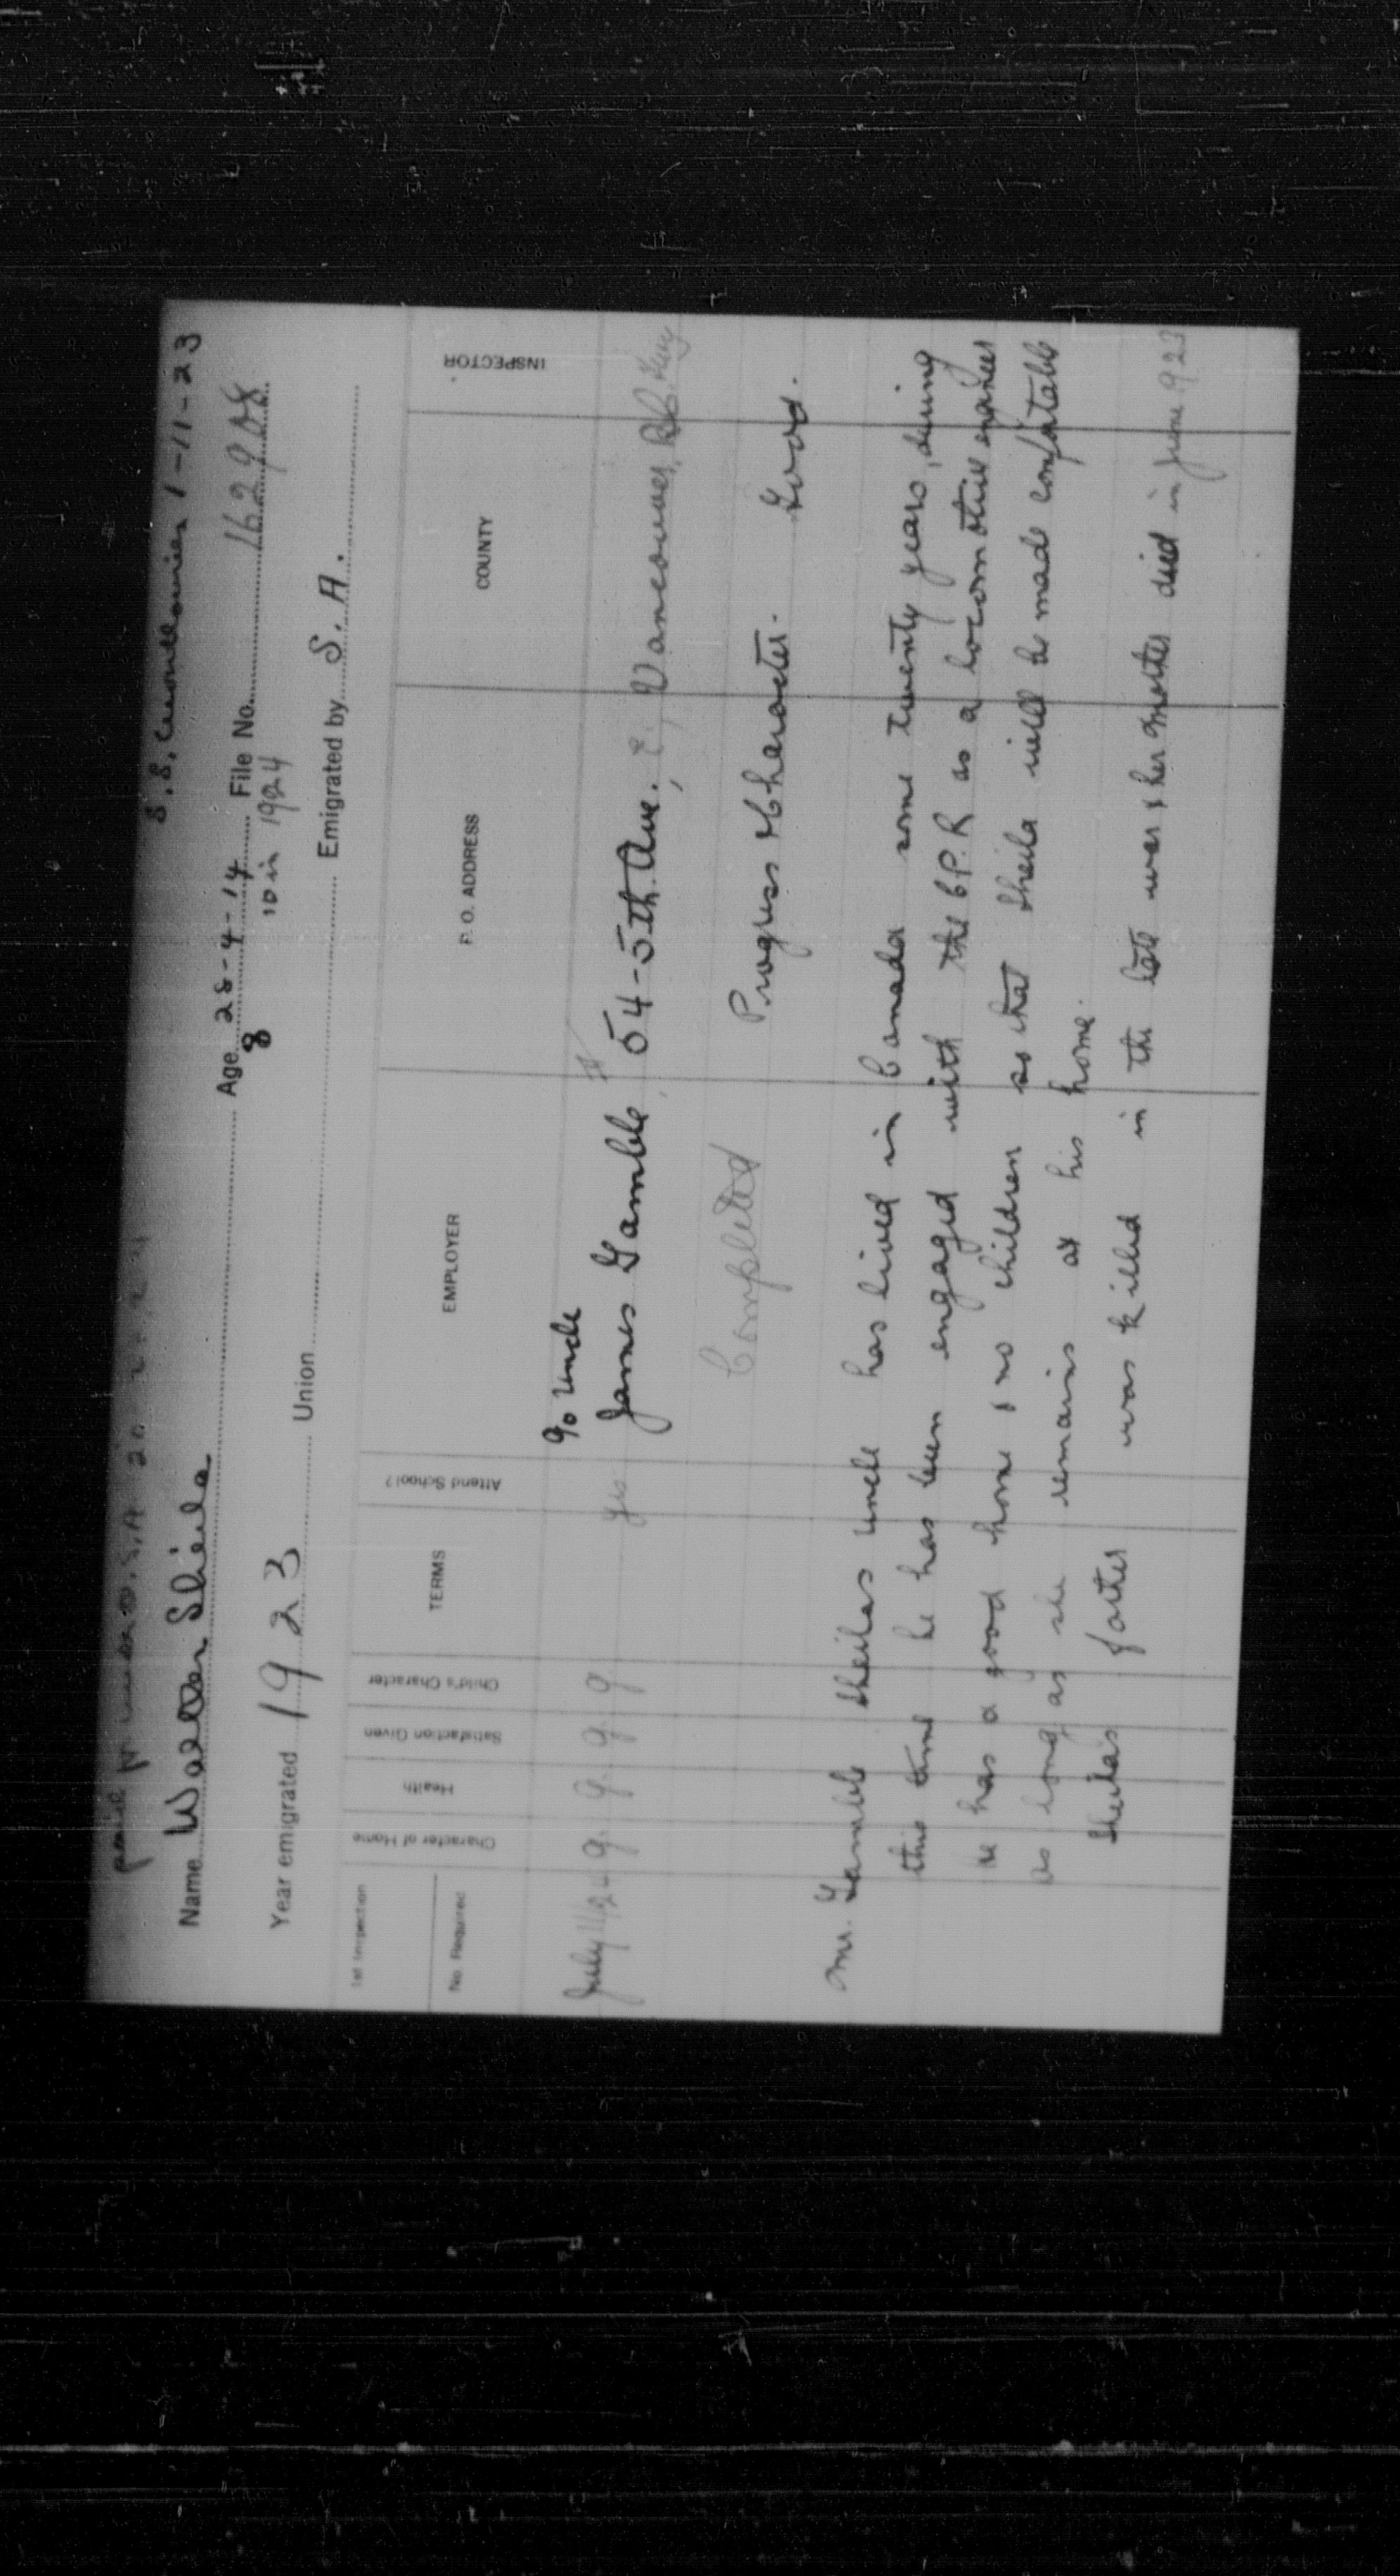 S.S. 1-11-23
Name Walker Sheila Age 28-4-14 File No. 162908
8 10 in 1924
Year emigrated 1923 Union Emigrated by S. A.
1st Inspection
No. Required
Character of Home
Health
Satisfaction Given
Child's Character
TERMS
Attend School?
EMPLOYER
P. O. ADDRESS
COUNTY
INSPECTOR
c/o Uncle
July 11/24 g. g. g. g yes James Gamble, 54-5th. Ave. E, Vancouver, B.C.
Completed Progress & Character. Good.
Mr. Gamble Sheilas uncle has lived in Canada some twenty years, during
this time he has been engaged with the C.P.R as a locomotive engineer
he has a good home & no children so that Sheila will be made comfortable
as long as she remains at his home.
Sheila's father was killed in the late war & her mother died in June 1923